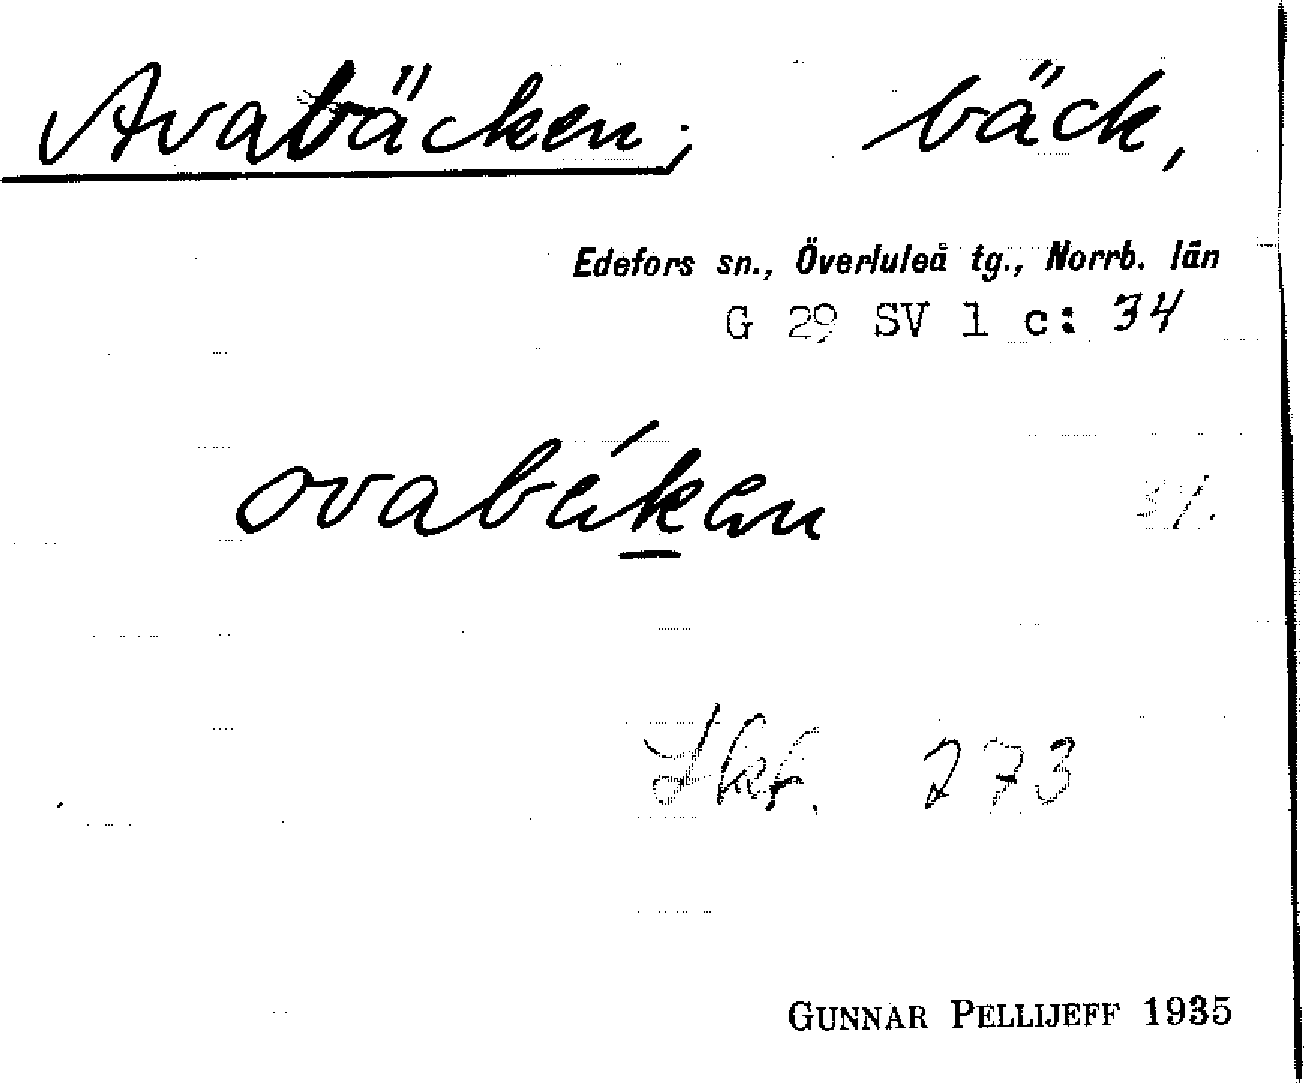 Avabäcken; bäck,
Edefors sn., Överluleå tg., Norrb. län
G 29 SV 1 c: 34
273
GUNNAR PELLIJEFF 1935